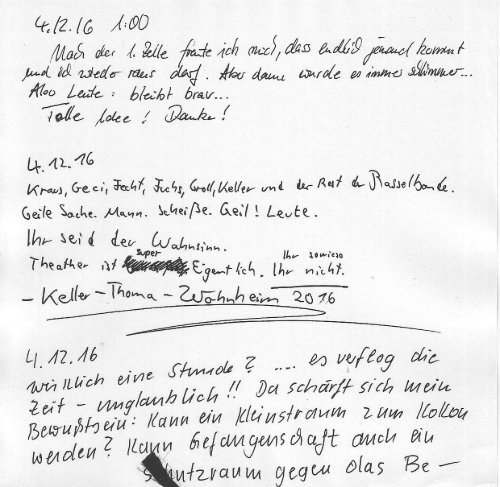 4.12.16 1:00
Nach der 1. Zelle freute ich mich, dass endlich jemand kommt
und ich wieder raus darf. Aber dann wurde es immer schlimmer...
Also Leute: bleibt brav...
Tolle Idee! Danke!
4.12.16
Kraus, Geci, Fecht, Fuchs, Groll, Keller und der Rest der Rasselbande.
Geile Sache. Mann. Scheiße. Geil! Leute.
Ihr seid der Wahnsinn.
Theather ist super Eigentlich. Ihr sowieso
Ihr nicht.
- Keller - Thoma - Wohnheim 2016
4.12.16
wirklich eine Stunde? .... es verflog die
Zeit - unglaublich!! Da schärft sich mein
Bewußtsein: Kann ein Kleinstraum zum Kokon
werden? Kann Gefangenschaft auch ein
Schutzraum gegen das Be-